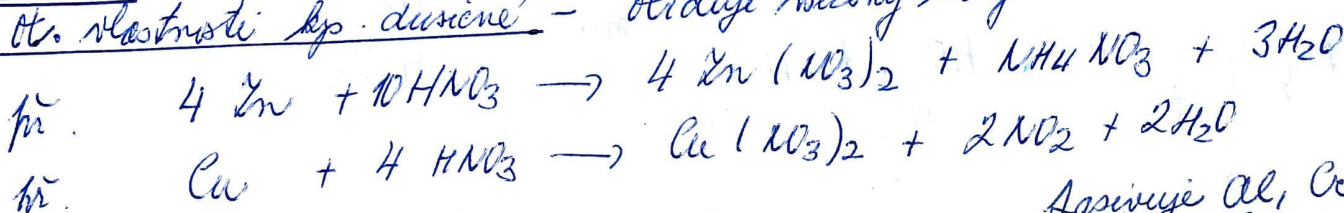 Ox. vlastnosti kys. dusičné - oxiduje
př. 4 Zn + 10 HNO3 → 4 Zn(NO3)2 + NH4NO3 + 3H2O
př. Cu + 4 HNO3 → Cu(NO3)2 + 2NO2 + 2H2O
Al, Cr